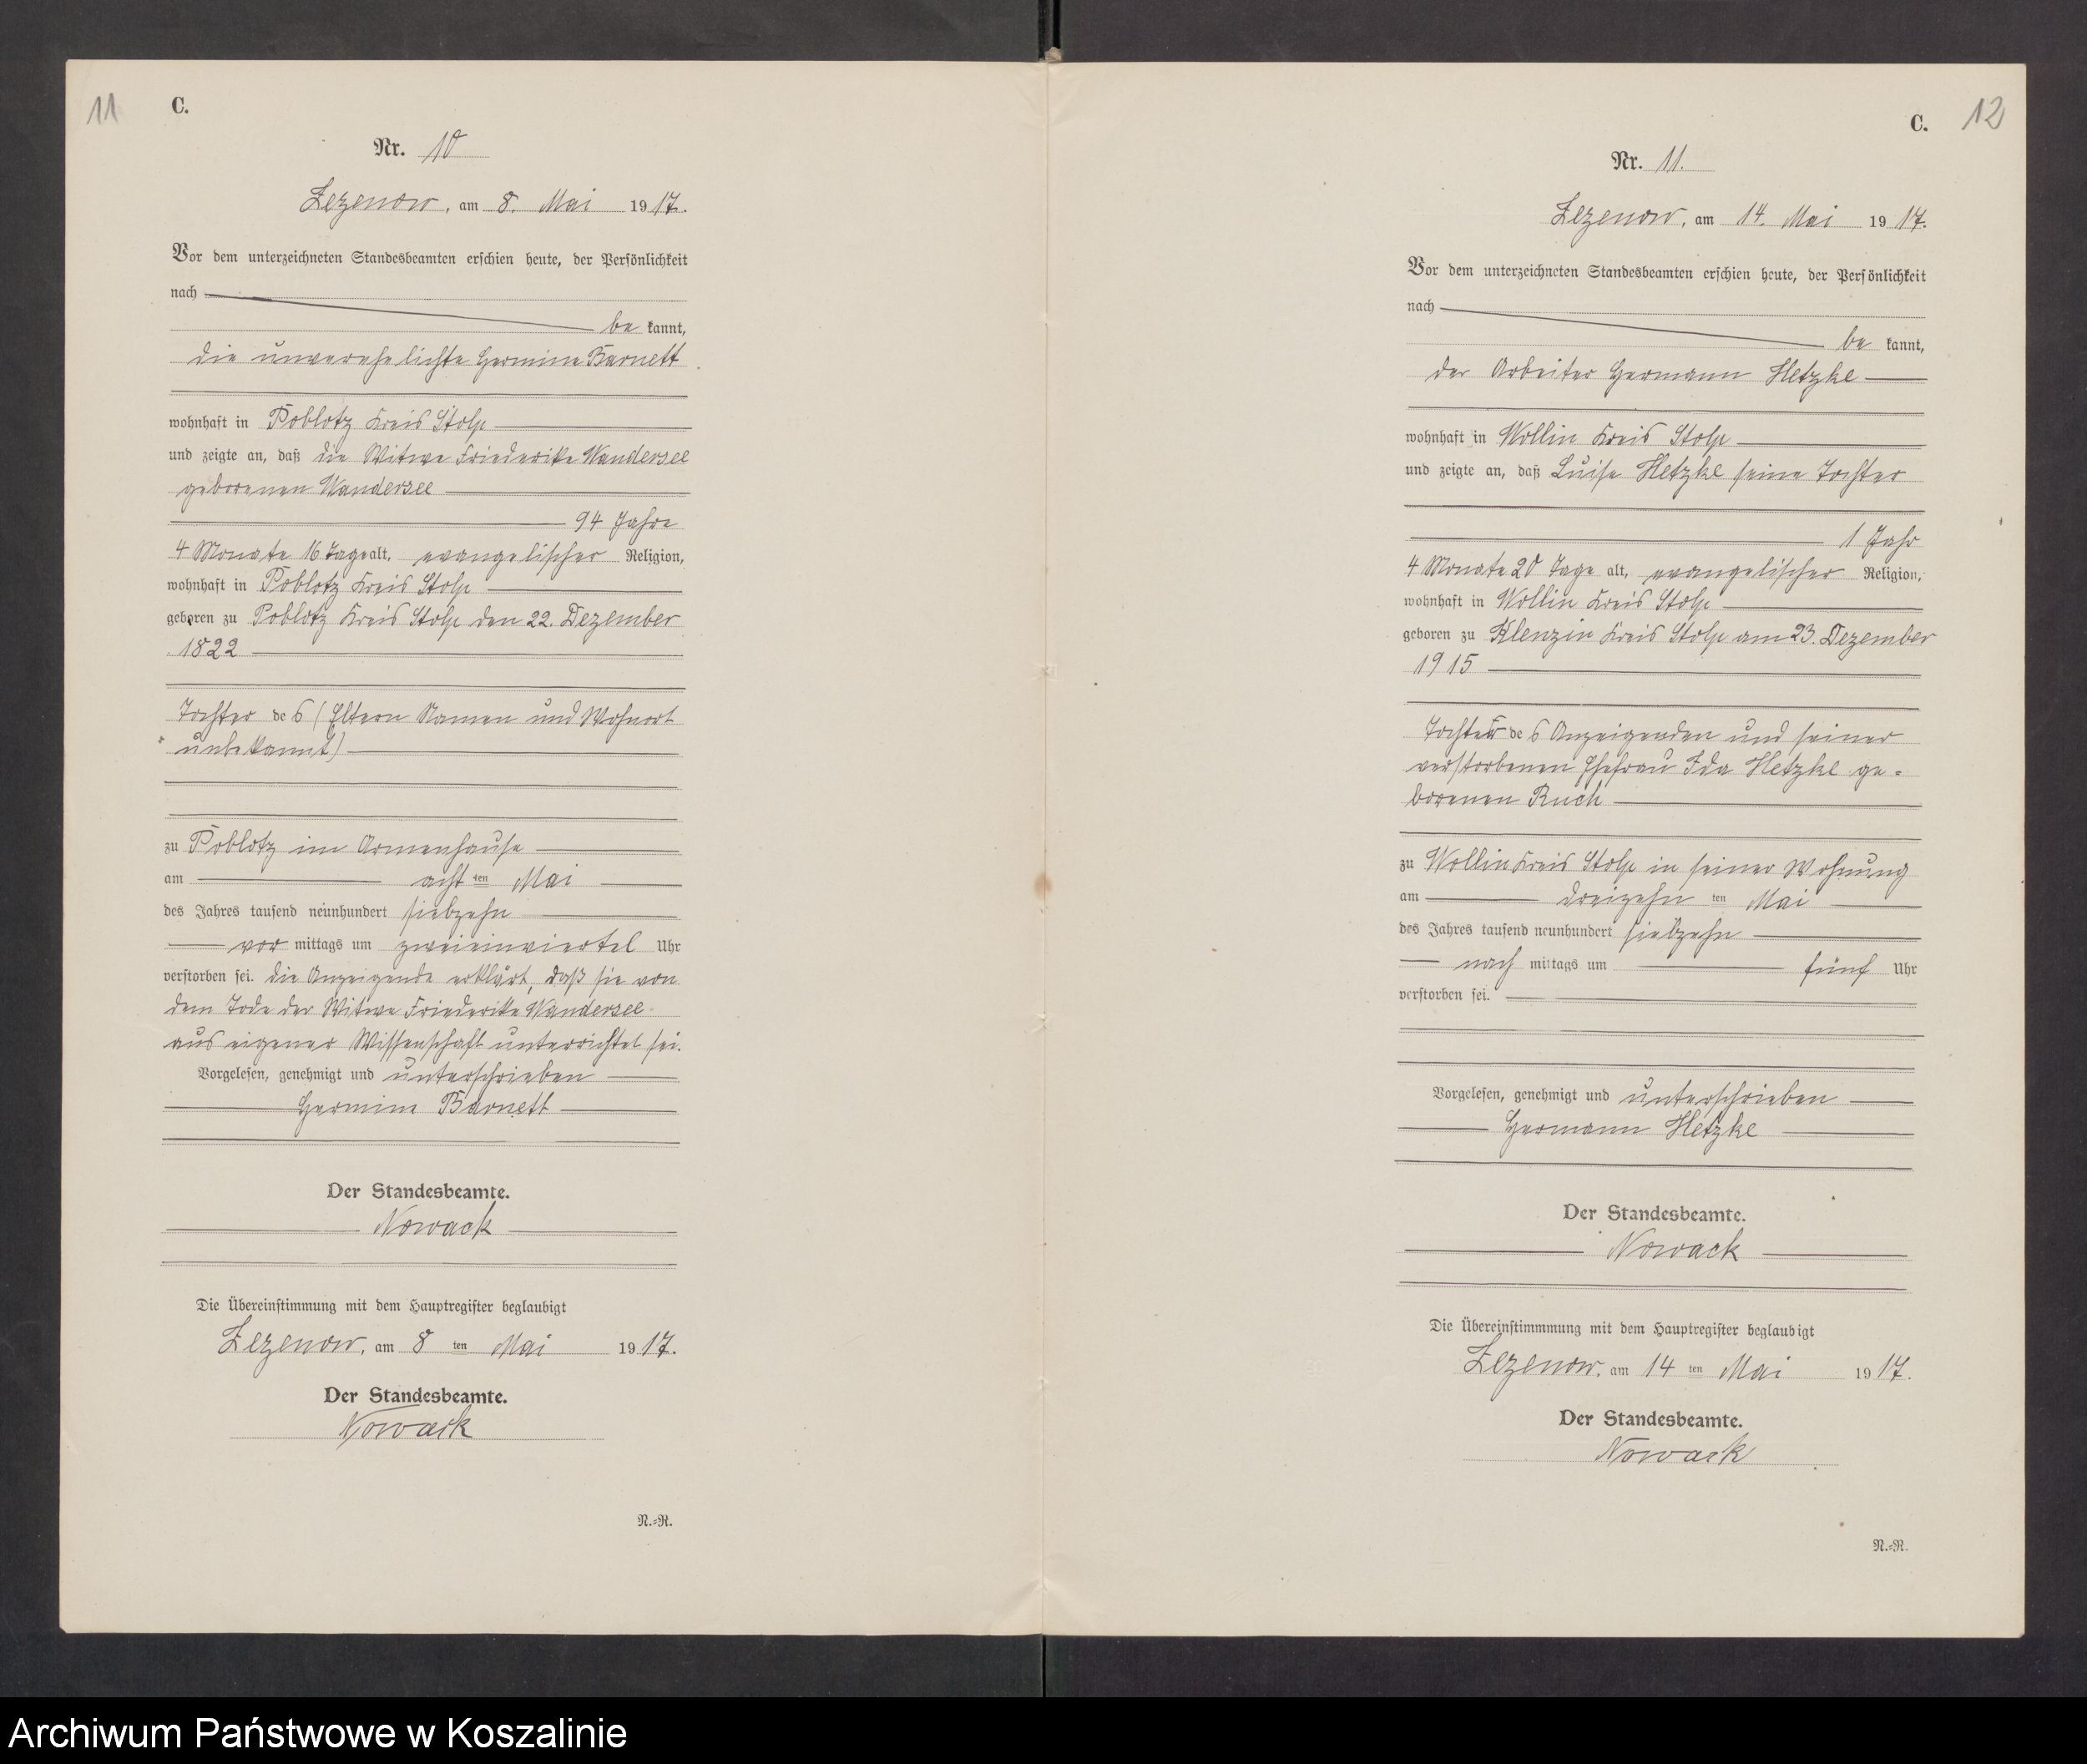 11
C.
Nr. 10
Zezenow, am 8. Mai 1917.
Vor dem unterzeichneten Standesbeamten erschien heute, der Persönlichkeit
nach
be kannt,
die unverehelichte Hermine Barnett
wohnhaft in Poblotz Kreis Stolp
und zeigte an, daß die Witwe Friederike Wandersee
geborenen Wandersee
94 Jahre
4 Monate 16 Tage alt, evangelischer Religion,
wohnhaft in Poblotz Kreis Stolp
geboren zu Poblotz Kreis Stolp den 22. Dezember
1822
Tochter des (Eltern Namen und Wohnort
unbekannt)
zu Poblotz im Armenhause
am acht ten Mai
des Jahres tausend neunhundert siebzehn
vor mittags um zweieinviertel Uhr
verstorben sei. Die Anzeigende erklärt, daß sie von
dem Tode der Witwe Friederike Wandersee
aus eigener Wissenschaft unterrichtet sei.
Vorgelesen, genehmigt und unterschrieben
Hermine Barnett
Der Standesbeamte.
Nowack
Die Übereinstimmung mit dem Hauptregister beglaubigt
Zezenow, am 8 ten Mai 1917.
Der Standesbeamte.
Nowack
N.=R.
C. 12
Nr. 11.
Zezenow, am 14. Mai 1917.
Vor dem unterzeichneten Standesbeamten erschien heute, der Persönlichkeit
nach
be kannt,
der Arbeiter Hermann Hetzke
wohnhaft in Wollin Kreis Stolp
und zeigte an, daß Luise Hetzke seine Tochter
1 Jahr
4 Monate 20 Tage alt, evangelischer Religion,
wohnhaft in Wollin Kreis Stolp
geboren zu Klenzin Kreis Stolp am 23. Dezember
1915
Tochter des Anzeigenden und seiner
verstorbenen Ehefrau Ida Hetzke ge-
borenen Ruch
zu Wollin Kreis Stolp in seiner Wohnung
am dreizehn ten Mai
des Jahres tausend neunhundert siebzehn
nach mittags um fünf Uhr
verstorben sei.
Vorgelesen, genehmigt und unterschrieben
Hermann Hetzke
Der Standesbeamte.
Nowack
Die Übereinstimmmung mit dem Hauptregister beglaubigt
Zezenow, am 14 ten Mai 1917.
Der Standesbeamte.
Nowack
N.=R.
Archiwum Państwowe w Koszalinie